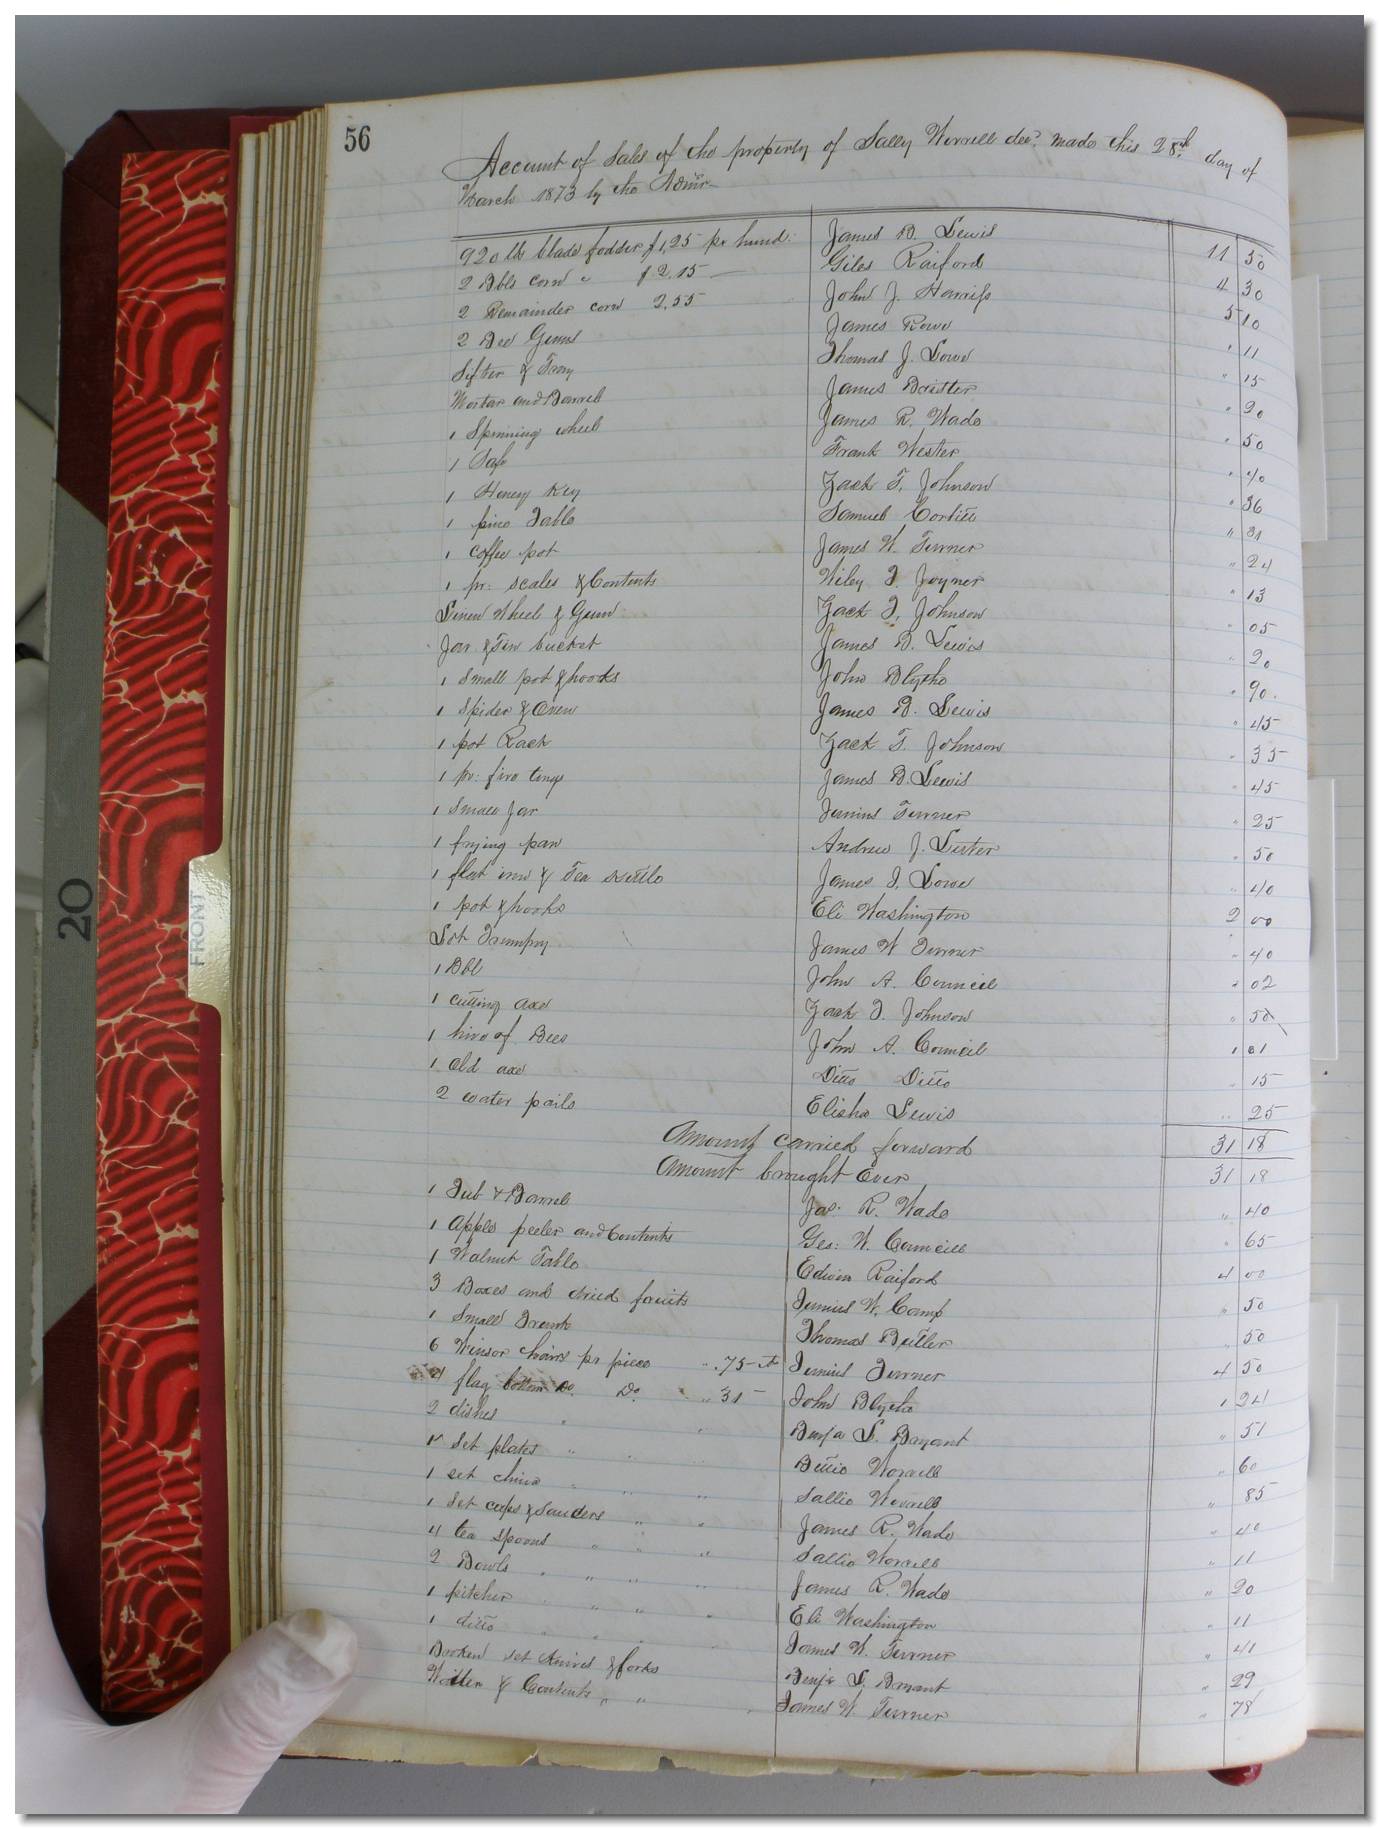 56
Account of Sales of the property of Sally Worrell decd. made this 28th day of
March 1873 by the Admr
920 lb blade fodder $1,25 pr hund. James B. Lewis 11 50
2 Bbls corn " $2,15 Giles Raiford 4 30
2 Remainder corn 2,55 John J. Harriss 5 10
2 Bee Gums James Rowe " 11
Sifter & Tray Thomas J. Lowe " 15
Mortar and Barrel James Britter " 20
1 Spinning wheel James R. Wade " 50
1 Safe Frank Wester " 40
1 Honey Keg Zack T. Johnson " 36
1 pine Table Samuel " 31
1 coffee pot James W. Turner " 24
1 pr. scales & Contents Wiley T Joyner " 13
Linen Wheel & Gum Zack T. Johnson " 05
Jar & Tin bucket James B. Lewis " 20
1 Small pot & hooks John Blythe " 90
1 Spider & Oven James B. Lewis " 45
1 pot Rack Zack T. Johnson " 35
1 pr. fire tongs James B. Lewis " 45
1 Small Jar Junius Turner " 25
1 frying pan Andrew J. Lister " 50
1 flat iron & Tea Kettle James T. Lowe " 40
1 pot & hooks Eli Washington 2 00
Lot Trumpry James W Turner " 40
1 Bbl John A. Council " 02
1 cutting axe Zack T. Johnson " 50
1 hive of Bees John A. Council 1 01
1 Old axe Ditto Ditto " 15
2 water pails Elisha Lewis " 25
Amount carried forward 31 18
Amount brought Over 31 18
1 Tub & Barrel Jas. R. Wade " 40
1 Apple peeler and Contents Geo. W. Councill " 65
1 Walnut Table Edwin Raiford 4 00
3 Boxes and dried fruits Junius W. Camp " 50
1 Small Trunk Thomas Butler " 50
6 Winsor chairs pr piece " .75 cts Junius Turner 4 50
4 flag bottom Do. Do " 31 John Blythe 1 24
2 dishes " " Benja S. Bryant " 51
1 Set plates " " " Bettie Worrell " 60
1 set china " " " Sallie Worrell " 85
1 Set cups & Saucers " " James R. Wade " 40
4 tea spoons " " " Sallie Worrell " 11
2 Bowls " " " " James R. Wade " 20
1 pitcher " " " " Eli Washington " 11
1 ditto " " " James W. Turner " 41
Broken set Knives & forks Benja S. Bryant " 29
Waiter & Contents " " James W. Turner " 78
20
FRONT